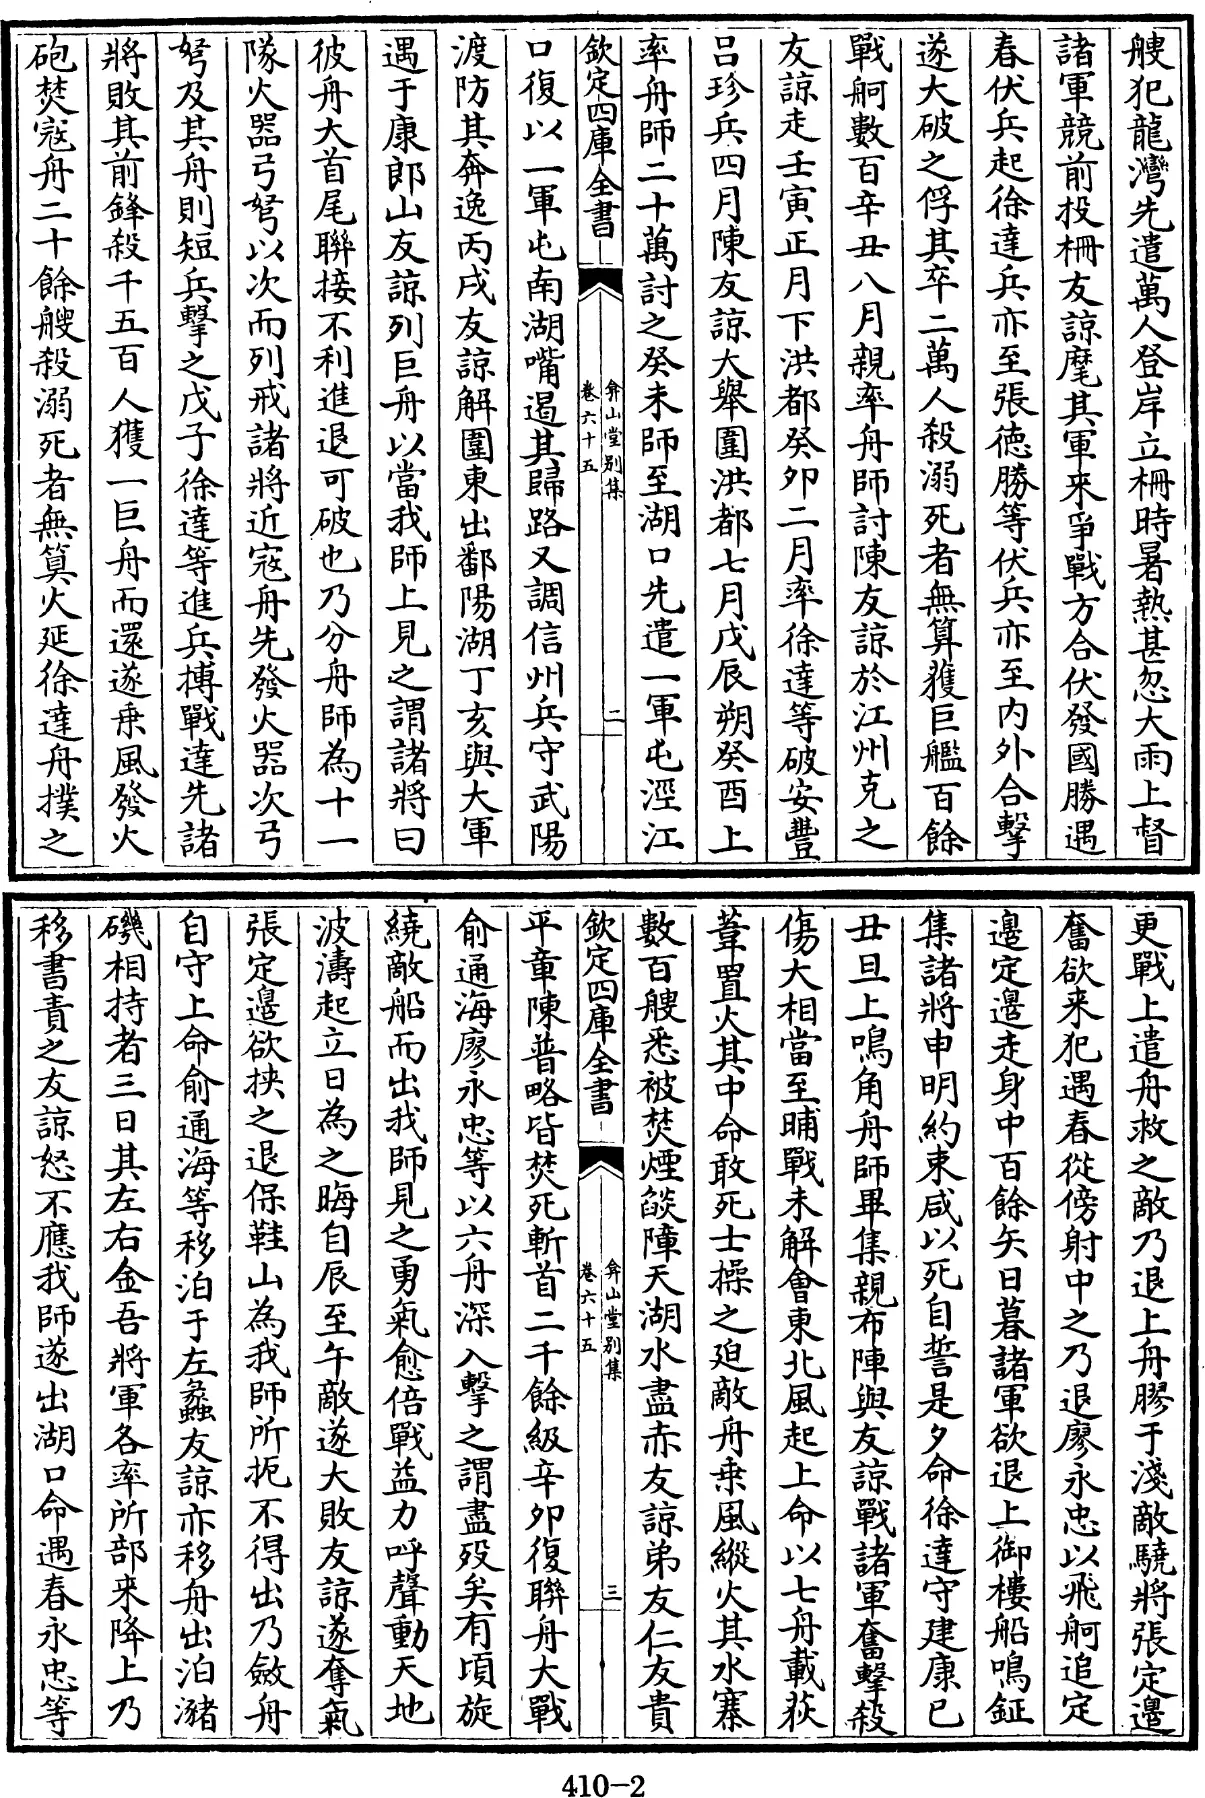 艘犯龍灣先遣萬人登岸立柵時暑熱甚忽大雨上督
諸軍競前投柵友諒麾其軍来爭戰方合伏發國勝遇
春伏兵起徐達兵亦至張德勝等伏兵亦至内外合擊
遂大破之俘其卒二萬人殺溺死者無算獲巨艦百餘
戰舸數百辛丑八月親率舟師討陳友諒於江州克之
友諒走壬寅正月下洪都癸卯二月率徐達等破安豐
吕珍兵四月陳友諒大舉圍洪都七月戊辰朔癸酉上
率舟師二十萬討之癸未師至湖口先遣一軍屯涇江
欽定四庫全書
弇山堂别集
卷六十五
二
口復以一軍屯南湖嘴遏其歸路又調信州兵守武陽
渡防其奔逸丙戌友諒解圍東出鄱陽湖丁亥與大軍
遇于康郎山友諒列巨舟以當我師上見之謂諸將曰
彼舟大首尾聯接不利進退可破也乃分舟師為十一
隊火器弓弩以次而列戒諸將近寇舟先發火器次弓
弩及其舟則短兵擊之戊子徐達等進兵搏戰達先諸
將敗其前鋒殺千五百人獲一巨舟而還遂乗風發火
砲焚寇舟二十餘艘殺溺死者無算火延徐達舟撲之
更戰上遣舟救之敵乃退上舟膠于淺敵驍將張定邉
奮欲来犯遇春從傍射中之乃退廖永忠以飛舸追定
邉定邉走身中百餘矢日暮諸軍欲退上御樓船鳴鉦
集諸將申明約束咸以死自誓是夕命徐達守建康已
丑旦上鳴角舟師畢集親布陣與友諒戰諸軍奮擊殺
傷大相當至晡戰未解會東北風起上命以七舟載荻
葦置火其中命敢死士操之廹敵舟乗風縱火其水寨
數百艘悉被焚煙燄障天湖水盡赤友諒弟友仁友貴
欽定四庫全書
弇山堂别集
卷六十五
三
平章陳普略皆焚死斬首二千餘級辛卯復聯舟大戰
俞通海廖永忠等以六舟深入擊之謂盡殁矣有頃旋
繞敵船而出我師見之勇氣愈倍戰益力呼聲動天地
波濤起立日為之晦自辰至午敵遂大敗友諒遂奪氣
張定邉欲挾之退保鞋山為我師所扼不得出乃斂舟
自守上命俞通海等移泊于左蠡友諒亦移舟出泊瀦
磯相持者三日其左右金吾將軍各率所部来降上乃
移書責之友諒怒不應我師遂出湖口命遇春永忠等
410-2